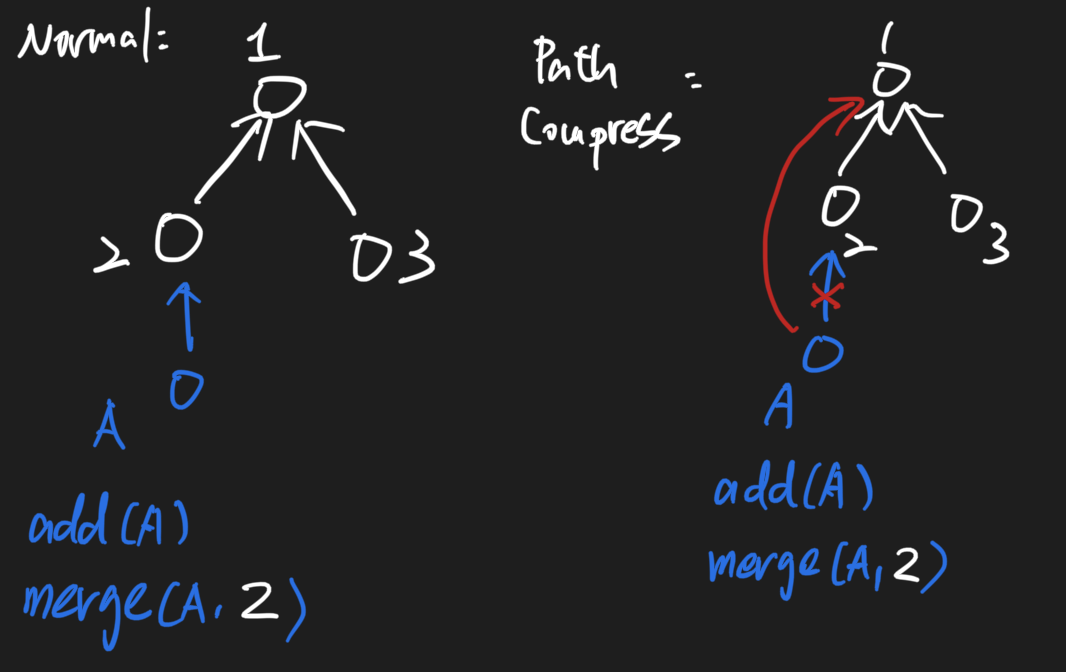 Normal:
1
2
3
A
add(A)
merge(A, 2)
Path
Compress
:
1
2
3
A
add(A)
merge(A, 2)